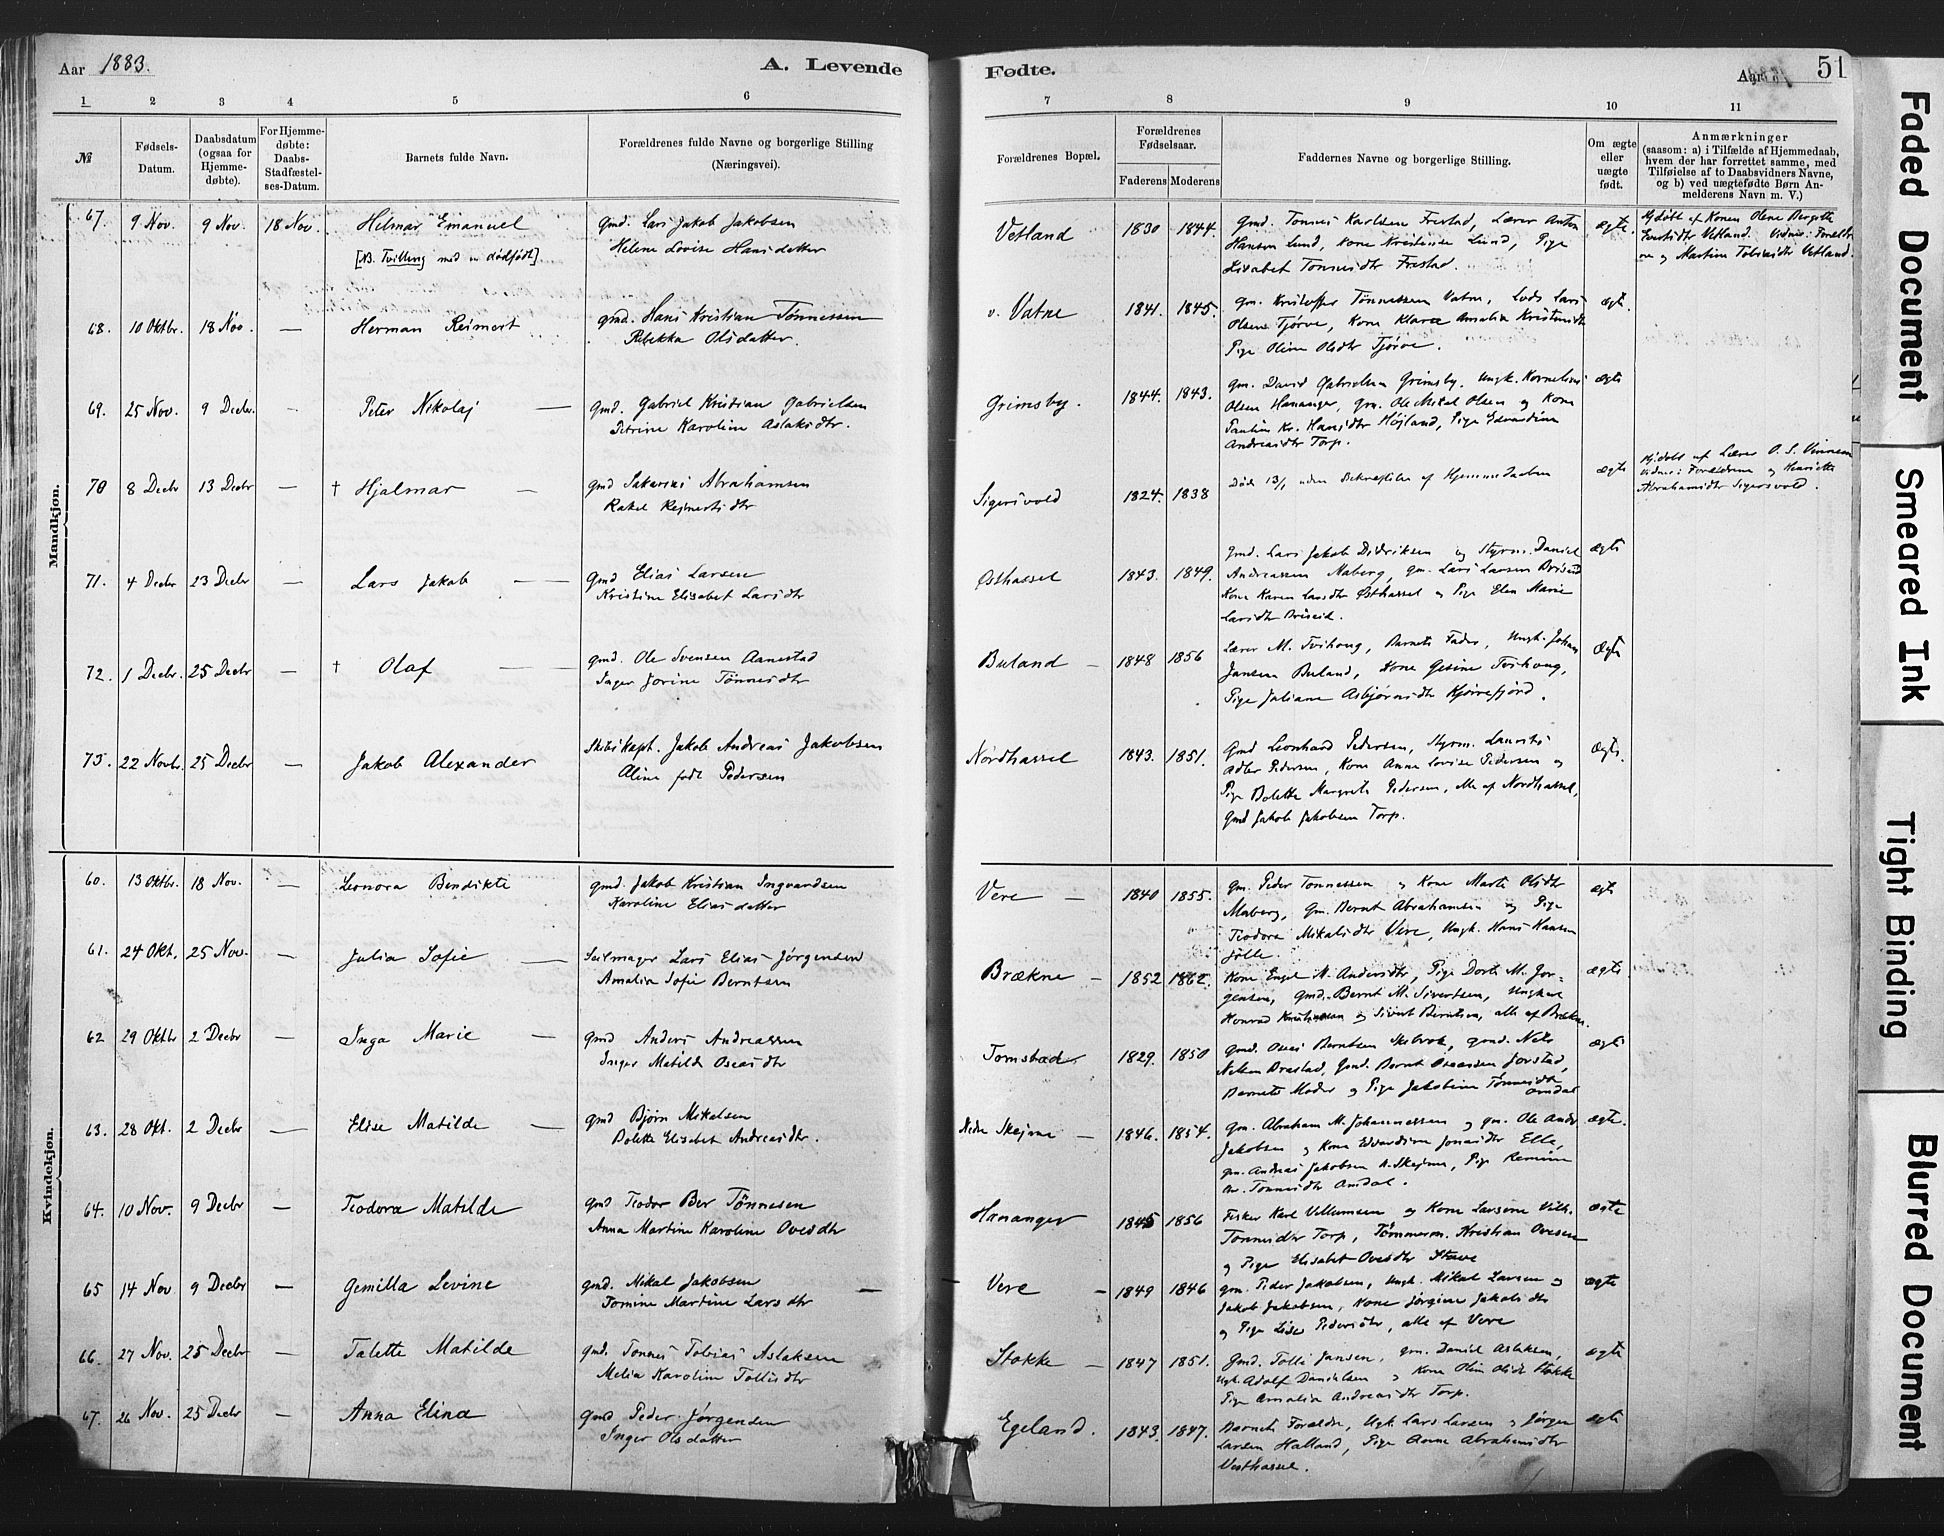 Aar 1883.
A. Levende
Fødte.
Aar
51
1 2 3 4 5 6 7 8 9 10 11
№
Fødsels-Datum.
Daabsdatum (ogsaa for Hjemme-døbte).
For Hjemme-døbte: Daabs-Stadfæstel-ses-Datum.
Barnets fulde Navn.
Forældrenes fulde Navne og borgerlige Stilling
(Næringsvei).
Forældrenes Bopæl.
Forældrenes Fødselsaar.
Faderens Moderens
Faddernes Navne og borgerlige Stilling.
Om ægte eller uægte født.
Anmærkninger
(saasom: a) i Tilfælde af Hjemmedaab,
hvem der har forrettet samme, med
Tilføielse af to Daabsvidners Navne,
og b) ved uægtefødte Børn An-
melderens Navn m. V.)
Mandkjøn.
67. 9 Nov. 9 Nov. 18 Nov. Hilmar Emanuel Gmd. Lars Jakob Jakobsen Vetland 1830 1844. Gmd. Tønnes Karlsen Frestad, Lærer Anton ægte.
[NB. Tvilling med en dødfødt] Helene Lovise Hansdatter Hanson Lund, Kone Kristine Lund, Pige
Lisabet Tønnesdtr Frestad. og Martine Tobiasdtr Vetland.
68. 10 Oktbr. 18 Nov. — Herman Reimert gmd. Hans Kristian Tønnessen v. Vatne 1841. 1845. gm. Kristoffer Tønnessen Vatne, Lods Lars ægte.
Rebekka Olsdatter. Olsen Tjörve, Kone Klara Amalia Kristensdtr
Pige Oline Olsdtr Tjörve.
69. 25 Nov. 9 Decbr. — Peter Nikolaj — gmd. Gabriel Kristian Gabrielsen Grimsby. 1844. 1843. gm. David Gabrielsen Grimsby. Ungk. Kornelius ægte
Petrine Karoline Aslaksdtr. Olsen Hananger, gm. Ole Mikal Olsen og Kone
Pauline Kr. Hansdtr Højland, Pige Edvardine
Andreasdtr Torp.
70 8 Decbr 13 Decbr — † Hjalmar — gmd Sakarias Abrahamsen Sigersvold 1824. 1838 Døde 13/1 uden Bekræftelse af Hjemmedaaben ægte Hjdøbt af Lærer O. S. Vinnem
Rakel Reimertsdtr Vidner: Forældrene og Henriette
Abrahamsdtr Sigersvold.
71. 4 Decbr 23 Decbr — Lars Jakob — gmd Elias Larsen Østhassel 1843. 1849. Gmd. Lars Jakob Didriksen og Styrm. Daniel ægte
Kristine Elisabet Larsdtr Andreassen Maberg, gm. Lars Larsen Briseid
Kone Karen Larsdtr Østhassel og Pige Elen Marie
Larsdtr Briseid.
72. 1 Decbr. 25 Decbr — † Olaf — gmd. Ole Svensen Aanestad Buland — 1848 1856 Lærer M. Tvihoug, Barnets Fader, Ungk. Johan ægte
Inger Jorine Tönnesdtr Jansen Buland, Kone Gesine Tvihoug,
Pige Juliane Asbjørnsdtr Kjørrefjord.
73. 22 Novbr. 25 Decbr — Jakob Alexander Skibskapt. Jakob Andreas Jakobsen Nordhassel 1843. 1851. Gmd Leonhard Pedersen, Styrm. Laurits ægte.
Aline født Pedersen Adler Pedersen, Kone Anna Lovise Pedersen og
Pige Bolette Margrete Pedersen, alle af Nordhassel,
Gmd Jakob Jakobsen Torp.
Kvindekjøn.
60. 13 Oktbr. 18 Nov. — Leonora Bendikte gmd. Jakob Kristian Ingvardsen Vere — 1840 1855. gm. Peder Tønnessen og Kone Marte Olsdtr ægte
Karoline Eliasdatter Maberg, gm. Bernt Abrahamsen og Pige
Teodora Mikalsdtr Vere, Ungk. Hans Hansen
Jølle.
61. 24 Okt. 25 Nov. — Julia Sofie — Seilmager Lars Elias Jørgensen Brækne — 1852 1862. Kone Engel M. Andersdtr, Pige Dorte M. Jör- ægte
Amalia Sofie Berntsen gensen, gmd. Bernt M. Sivertsen, Ungkarl
Konrad Kristiansen og Sivert Berntsen, alle af Brækne.
62 29 Oktbr 2 Decbr — Inga Marie — gmd Anders Andreassen Tomstad. 1829. 1850 gmd. Oseas Berntsen Skibrok, gmd. Nels ægte
Inger Matilde Oseasdtr Nelsen Brastad, gmd. Bernt Oseassen Jorstad,
Barnets Moder og Pige Jakobine Tönnesdtr
Omdal
63. 28 Okt. 2 Decbr — Elise Matilde — gmd Bjørn Mikelsen Nedre Skejme — 1846. 1854. gm. Abraham M. Johannessen og gm. Ole Andr. ægte.
Bolette Elisabet Andreasdtr. Jakobsen og Kone Edvardine Jonasdtr Elle,
gm. Andreas Jakobsen N. Skejme, Pige
Tønnesdtr Omdal.
64. 10 Nov. 9 Decbr — Teodora Matilde gmd Teodor Ber Tönnesen Hananger 1845 1856 Fisker Karl Villumsen og Kone Larsine Vilh. ægte
Anna Martine Karoline Ovesdtr Tønnesdtr Torp, Tømmerm. Kristian Ovesen
og Pige Elisabet Ovesdtr Stave
65 14 Nov 9 Decbr — Gemilla Levine gmd. Mikal Jakobsen — Vere — 1849 1846 gm. Peder Jakobsen, Ungk. Mikal Larsen og ægte
Tomine Martine Larsdtr Jakob Jakobsen, Kone Jørgine Jakobsdtr
og Pige Lise Pedersdtr, alle af Vere
66. 27 Nov. 25 Decbr — Talette Matilde gmd. Tönnes Tobias Aslaksen Stokke — 1847 1851. Gmd. Tolli Jansen, gm. Daniel Aslaksen, ægte
Melia Karoline Tollisdtr Ungk. Adolf Danielsen og Kone Oline Olsdtr Stokke
Pige Amalia Andreasdtr Torp.
67. 26 Nov. 25 Decbr — Anna Elina gmd Peder Jørgensen Egeland. 1843. 1847. Barnets Forældre, Ungk. Lars Larsen og Jørgen ægte
Inger Olsdatter Larsen Halland, Pige Anne Abrahamsdtr
Vesthassel.
Faded Document
Smeared Ink
Tight Binding
Blurred Document